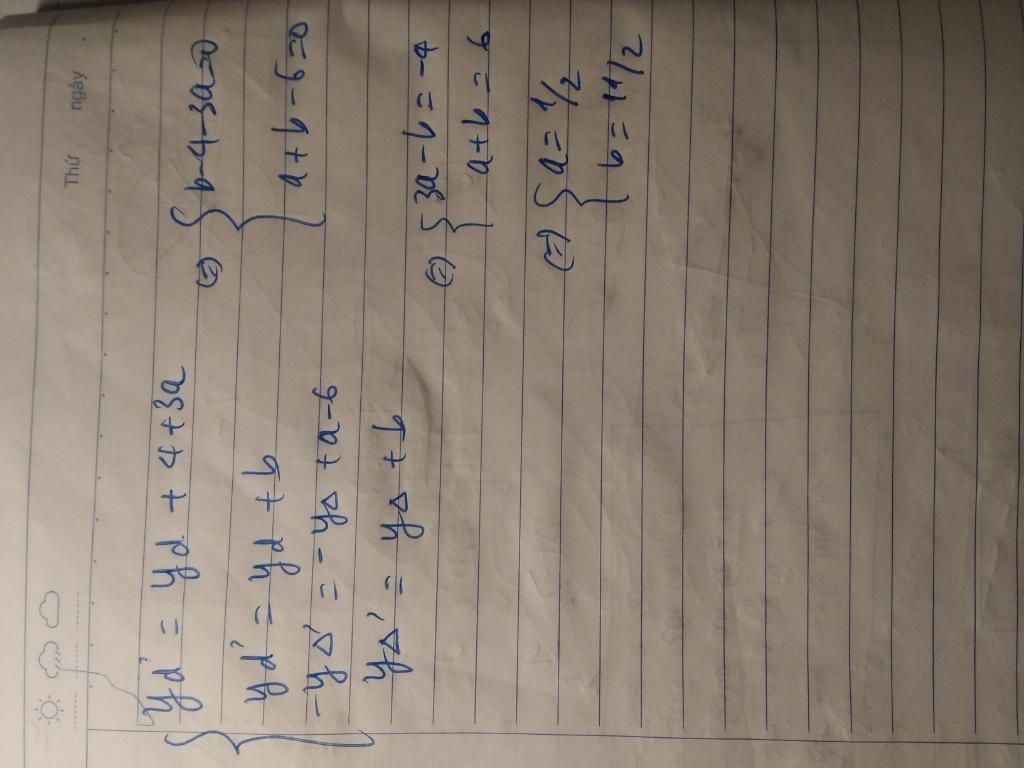 Thứ ngày
yd' = yd + 4 + 3a
yd' = yd + b
-yΔ' = -yΔ + a - 6
yΔ' = yΔ + b
(=) { b - 4 - 3a = 0
a + b - 6 = 0
(=) { 3a - b = -4
a + b = 6
(=) { a = 1/2
b = 11/2